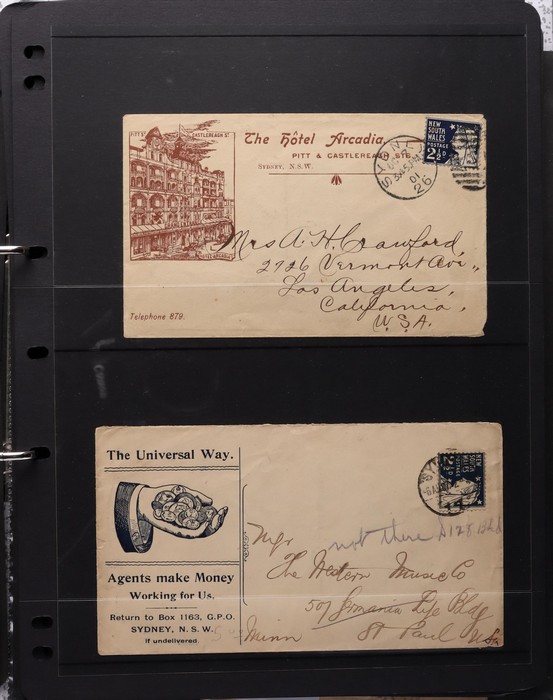 PITT ST
CASTLEREAGH ST
HOTEL ARCADIA
The Hôtel Arcadia
PITT & CASTLEREAGH STS.
SYDNEY, N.S.W.
SYDNEY
01
26
NEW
SOUTH
WALES
POSTAGE
2½
Mrs A. H. Crawford,
2726 Vermont Ave.,
Los Angeles,
California,
U.S.A.
Telephone 879.
The Universal Way.
Agents make Money
Working for Us.
Return to Box 1163, G.P.O.
SYDNEY, N. S. W.
If undelivered
NEW
SOUTH
WALES
POSTAGE
2½
not there
Mgr
The Western Music Co
507 Germania Life Bldg
St Paul
Minn
USA